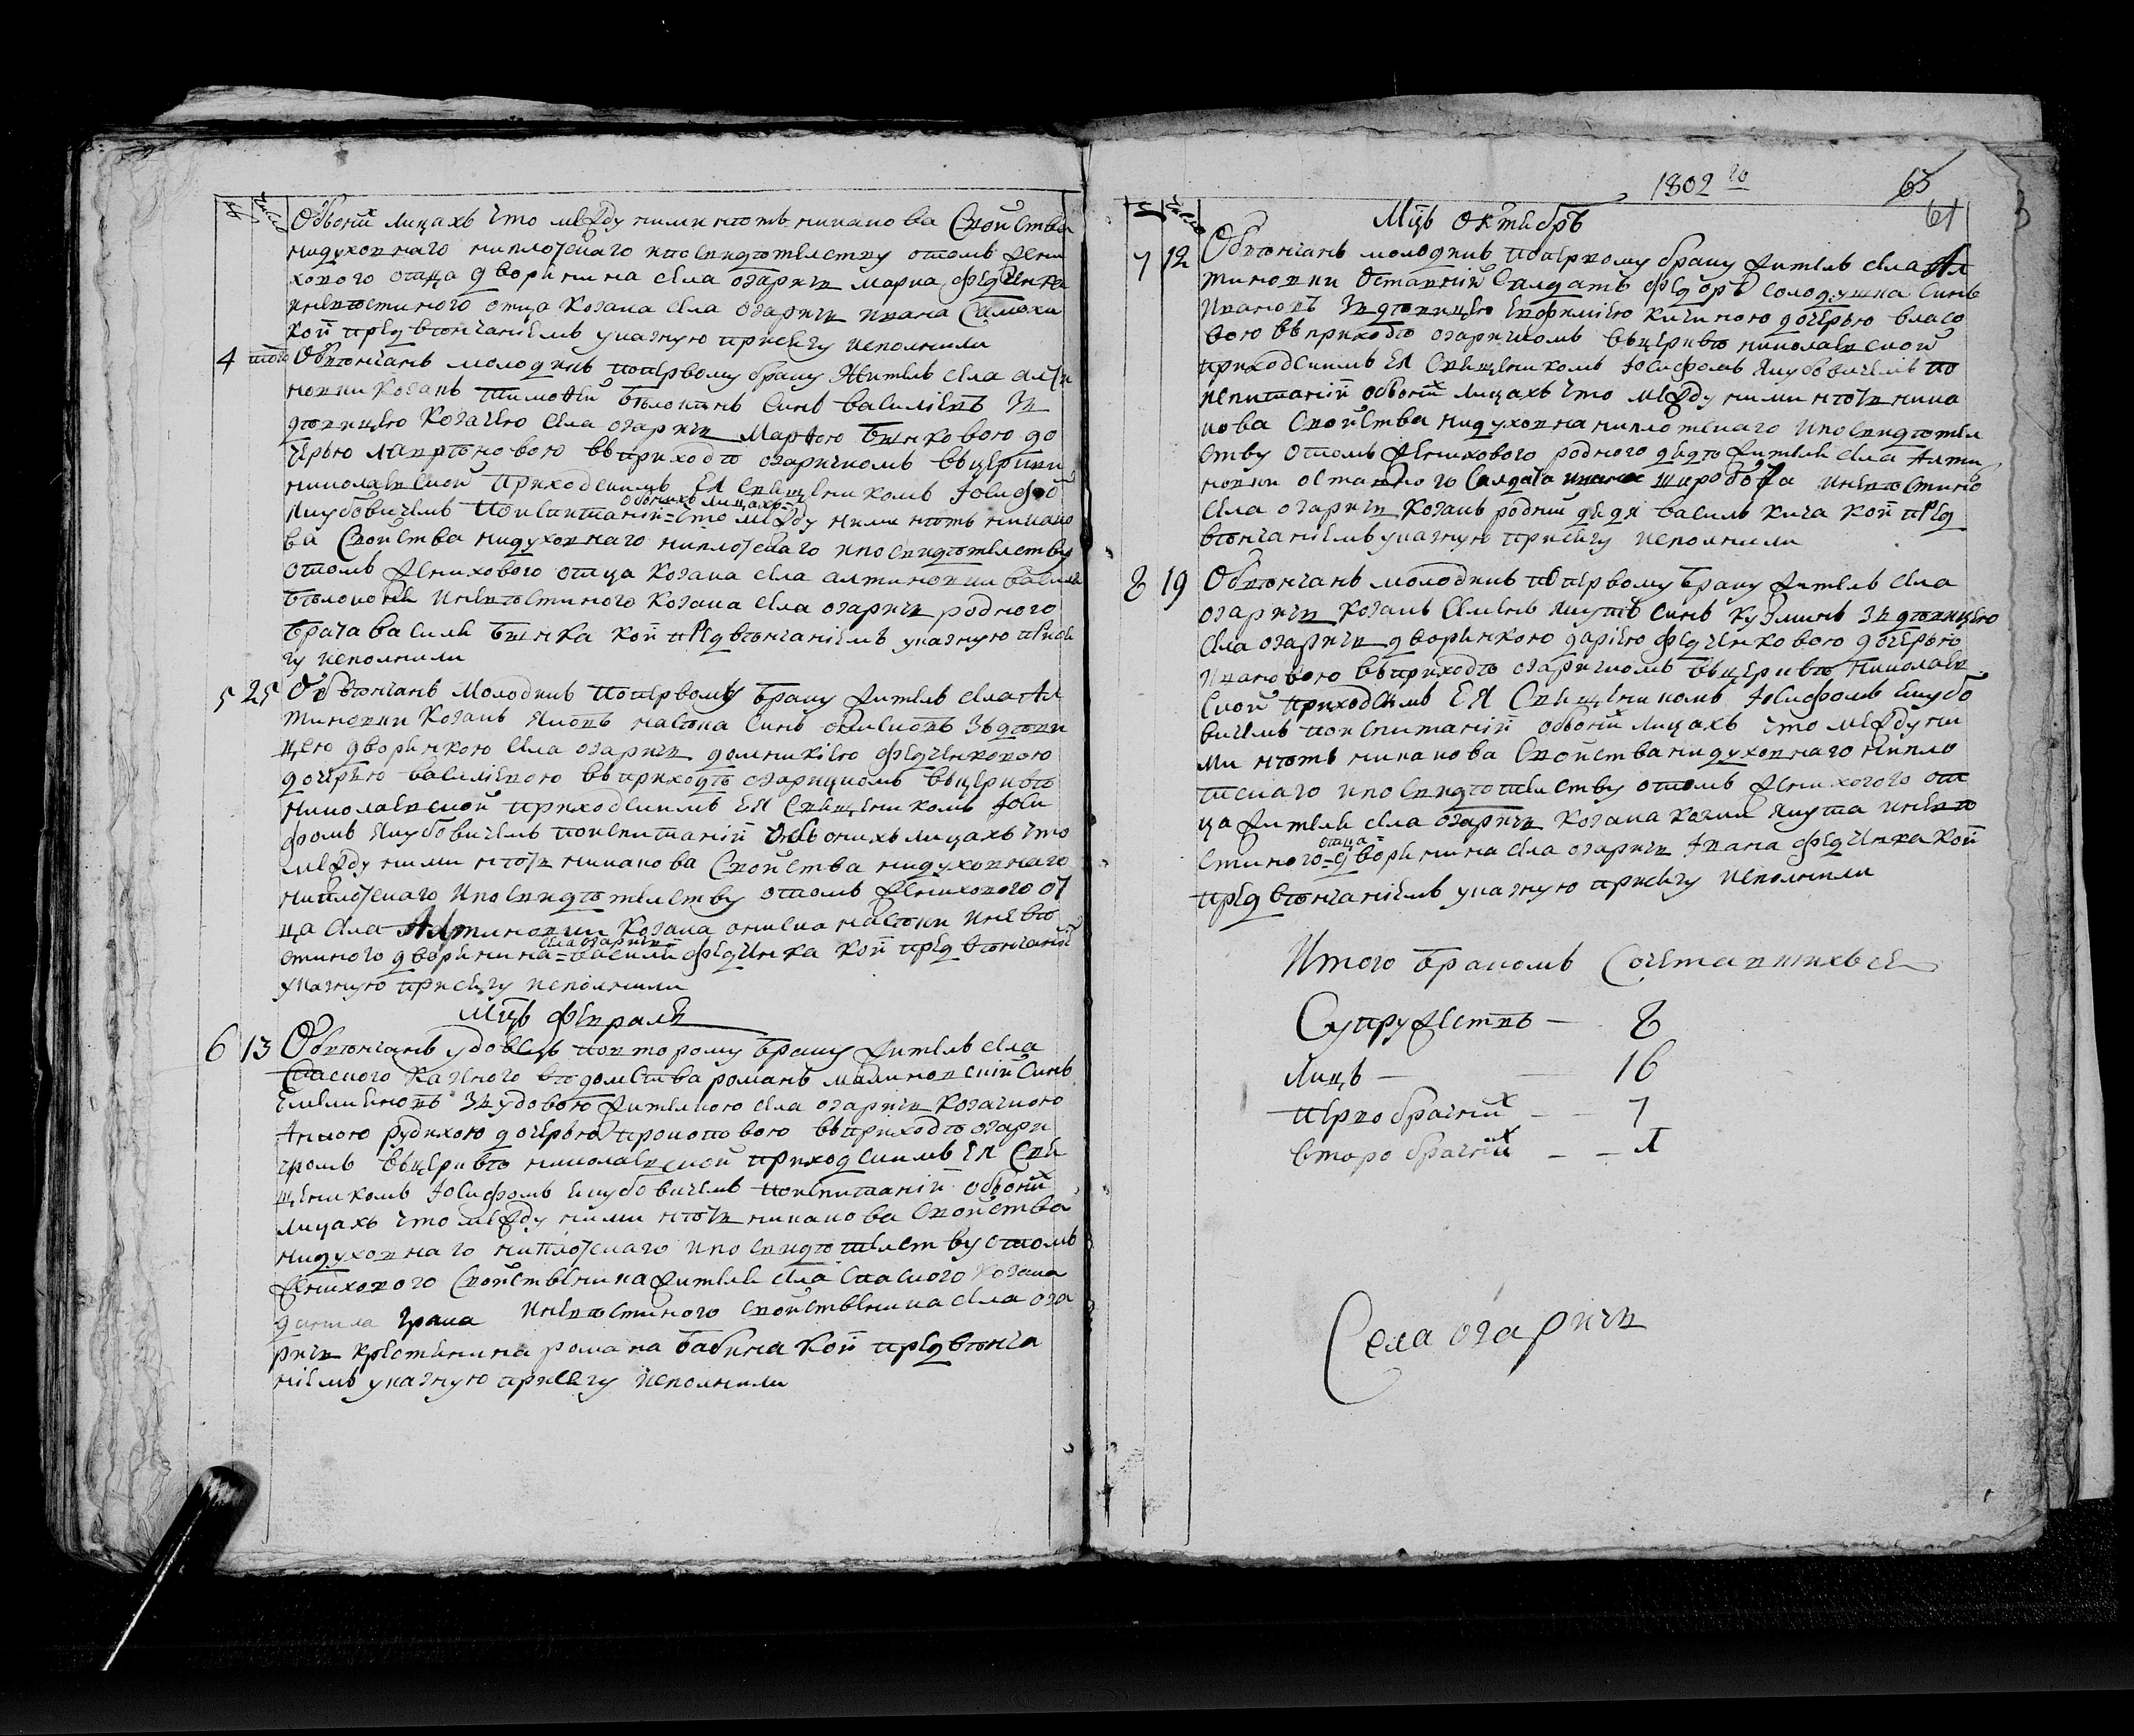 № Число
Обоних лицахъ что между ними нѣтъ никакова свойства
нидуховнаго ниплотскаго ипосвидѣтелству отомъ жени
хового отца дворянина села озаричъ марка федченка
иневѣстиного отца козака села озаричъ ивана самохи
кои предвѣнчаніемъ указную присягу исполнили
4 того Обвѣнчанъ молодикъ поперъвому браку житель села алти
новки козакъ тимофѣй бѣлоконь синъ василіевъ зъ
дѣвицею козачею села озаричъ марфою бшнковою до
черъю лавріоновою въприходѣ озарицкомъ въцеркви
николаевской приходскимъ ея священикомъ іосифо
якубовичемъ поиспитаній обонихъ лицахъ что между ними нѣтъ никако
ва свойства нидуховнаго ниплотскаго ипосвидѣтелству
отомъ женихового отца козака села алтиновки василя
бѣлоконя иневѣстиного козака села озаричъ родного
брата василя бшнка кои предвѣнчаніемъ указную прися
гу исполнили
5 25 Обвѣнчанъ молодикъ поперъвому браку житель села ал
тиновки козакъ яковъ насѣка синъ онисковъ зъдѣви
цею дворянкою села озаричъ домникіею федченковою
дочерью василіевою въприходѣ озарицкомъ въцерквѣ
николаевской приходскимъ ея священикомъ іоси
фомъ якубовичемъ поиспитаній обонихъ лицахъ что
между ними нѣтъ никакова свойства нидуховнаго
ниплотскаго ипосвидѣтелству отомъ женихового от
ца села алтиновки козака ониска насѣки иневѣ
стиного дворянина села озаричъ василя федченка кои предвѣнчаніе
указную присягу исполнили
Мцъ февраль
6 13 Обвѣнчанъ удовецъ повторому браку житель села
спаского казного вѣдомства романъ малиновскій синъ
емеляновъ зъ удовою жителкою села озаричъ козачкою
анною рудихою дочерью прокоповою въприходѣ озари
цкомъ въцерквѣ николаевской приходскимъ ея свя
щеникомъ іосифомъ якубовичемъ поиспитаній обоних
лицахъ что между ними нѣтъ никакова свойства
нидуховнаго ниплотскаго ипосвидѣтелству отомъ
женихового свойственика жителя села спаского козака
данила грака иневѣстиного свойственика села оза
ричъ крестянина романа бабича кои предвѣнча
ніемъ указную присягу исполнили
1802 го
63
61
№ Число
Мцъ октябръ
7 12 Обвѣнчанъ молодикъ поперъвому браку житель села ал
тиновки оставній салдатъ федоръ солодушка синъ
ивановъ зъдѣвицею евфиміею кичиною дочерью власо
вою въприходѣ озарицкомъ въцерквѣ николаевской
приходскимъ ея священикомъ іосифомъ якубовичемъ по
испитаній обоних лицахъ что между ними нѣтъ ника
кова свойства нидуховна ниплотскаго ипосвидѣтел
ству отомъ женихового родного дядѣ жителя села алти
новки оставного салдата иневѣстино
села озаричъ козакъ родній дядя василь кича кои пред
вѣнчаніемъ указную присягу исполнили
8 19 Обвѣнчанъ молодикъ поперъвому браку житель села
озаричъ козакъ семенъ якутъ синъ кузминъ зъ дѣвицею
села озаричъ дворянкою даріею федченковою дочерью
ивановою въприходѣ озарицкомъ въцерквѣ николаев
ской приходскимъ ея священикомъ іосифомъ якубо
вичемъ поиспитаній обоних лицахъ что между ни
ми нѣтъ никакова свойства нидуховнаго нипло
тскаго ипосвидѣтелству отомъ женихового от
ца жителя села озаричъ козака козми якута иневѣ
стиного отца дворянина села озаричъ ивана федченка кои
предвѣнчаніемъ указную присягу исполнили
Итого бракомъ сочетавшихъся
Супружествъ — 8
Лицъ — 16
первобрачних — 7
второбрачних — 1
Села озаричъ